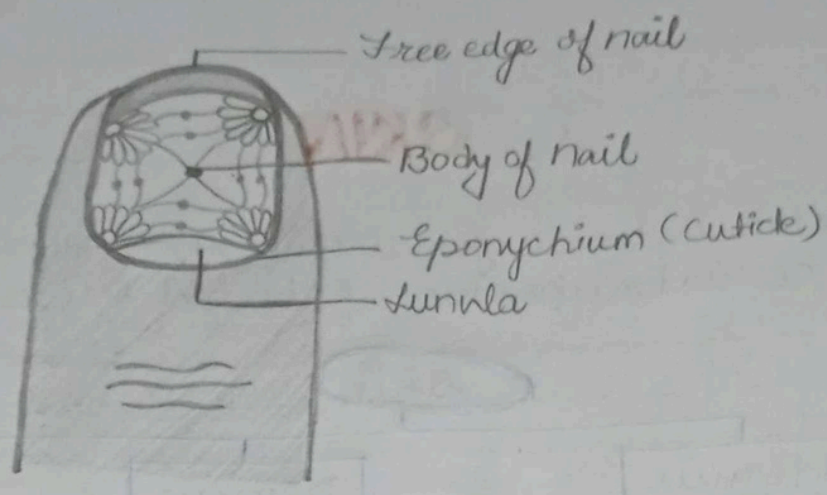 Free edge of nail
Body of nail
Eponychium (cuticle)
Lunula